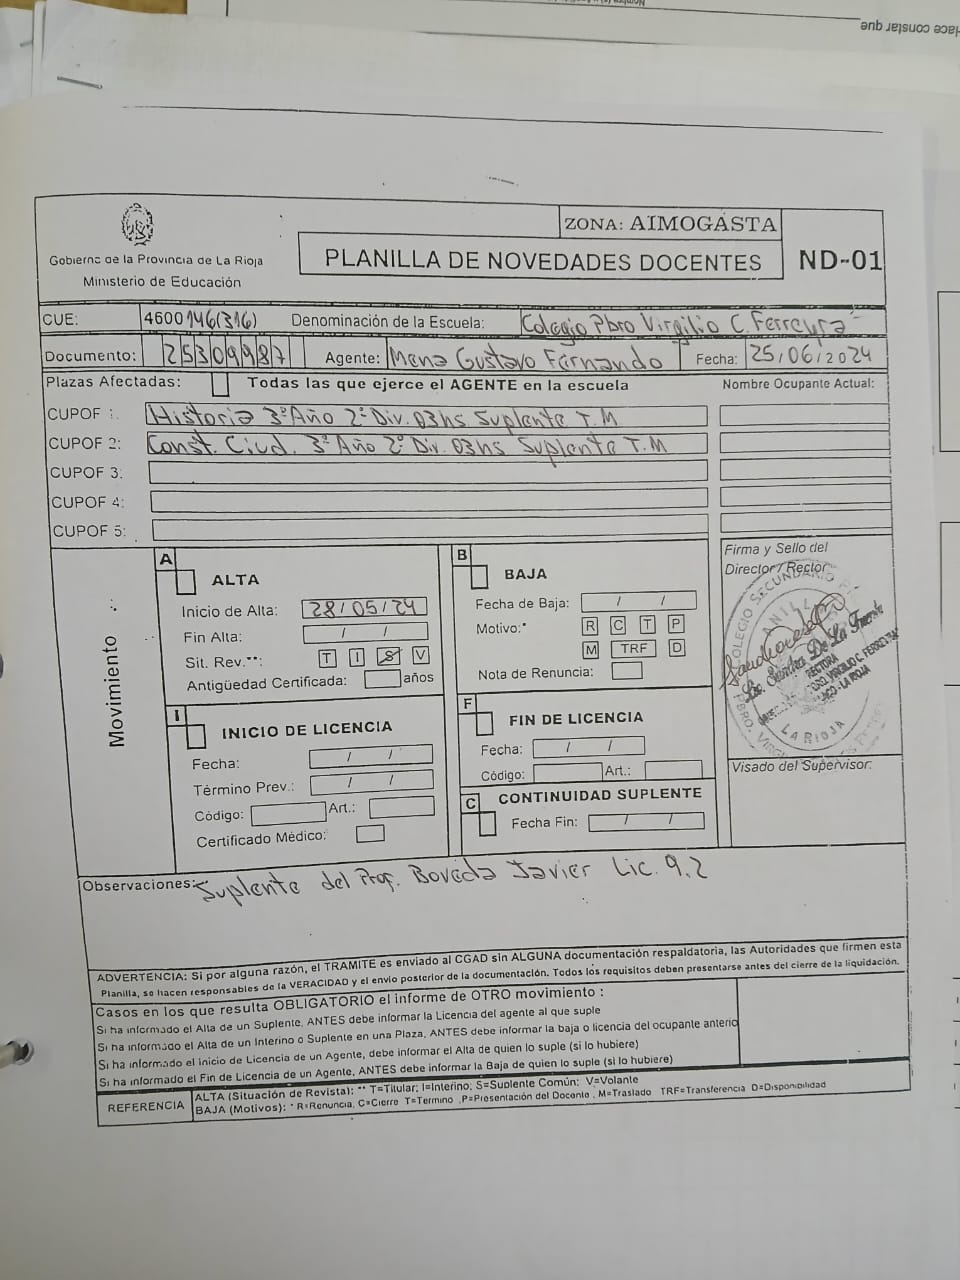 Hace constar que
ZONA: AIMOGASTA
Gobierno de la Provincia de La Rioja
Ministerio de Educación
PLANILLA DE NOVEDADES DOCENTES
ND-01
CUE: 4600146(316) Denominación de la Escuela: Colegio Pbro Virgilio C. Ferreyra
Documento: 25309987 Agente: Mena Gustavo Fernando Fecha: 25/06/2024
Plazas Afectadas: Todas las que ejerce el AGENTE en la escuela Nombre Ocupante Actual:
CUPOF 1: Historia 3º Año 2º Div. 03hs Suplente T.M
CUPOF 2: Const. Ciud. 3º Año 2º Div. 03hs Suplente T.M
CUPOF 3:
CUPOF 4:
CUPOF 5:
Movimiento
A ALTA
Inicio de Alta: 28/05/24
Fin Alta: / /
Sit. Rev.**: T I S V
Antigüedad Certificada: años
B BAJA
Fecha de Baja: / /
Motivo:* R C T P
M TRF D
Nota de Renuncia:
Firma y Sello del
Director / Rector
Lic. Sandra De La Fuente
RECTORA
LA RIOJA
I INICIO DE LICENCIA
Fecha: / /
Término Prev.: / /
Código: Art.:
Certificado Médico:
F FIN DE LICENCIA
Fecha: / /
Código: Art.:
C CONTINUIDAD SUPLENTE
Fecha Fin: / /
Visado del Supervisor:
Observaciones: Suplente del Prof. Boveda Javier Lic. 9.2
ADVERTENCIA: Si por alguna razón, el TRAMITE es enviado al CGAD sin ALGUNA documentación respaldatoria, las Autoridades que firmen esta
Planilla, se hacen responsables de la VERACIDAD y el envío posterior de la documentación. Todos los requisitos deben presentarse antes del cierre de la liquidación.
Casos en los que resulta OBLIGATORIO el informe de OTRO movimiento :
Si ha informado el Alta de un Suplente, ANTES debe informar la Licencia del agente al que suple
Si ha informado el Alta de un Interino o Suplente en una Plaza, ANTES debe informar la baja o licencia del ocupante anterio
Si ha informado el inicio de Licencia de un Agente, debe informar el Alta de quien lo suple (si lo hubiere)
Si ha informado el Fin de Licencia de un Agente, ANTES debe informar la Baja de quien lo suple (si lo hubiere)
REFERENCIA
ALTA (Situación de Revista): ** T=Titular; I=Interino; S=Suplente Común; V=Volante
BAJA (Motivos): * R=Renuncia, C=Cierre T=Termino ,P=Presentación del Docente , M=Traslado TRF=Transferencia D=Disponibilidad